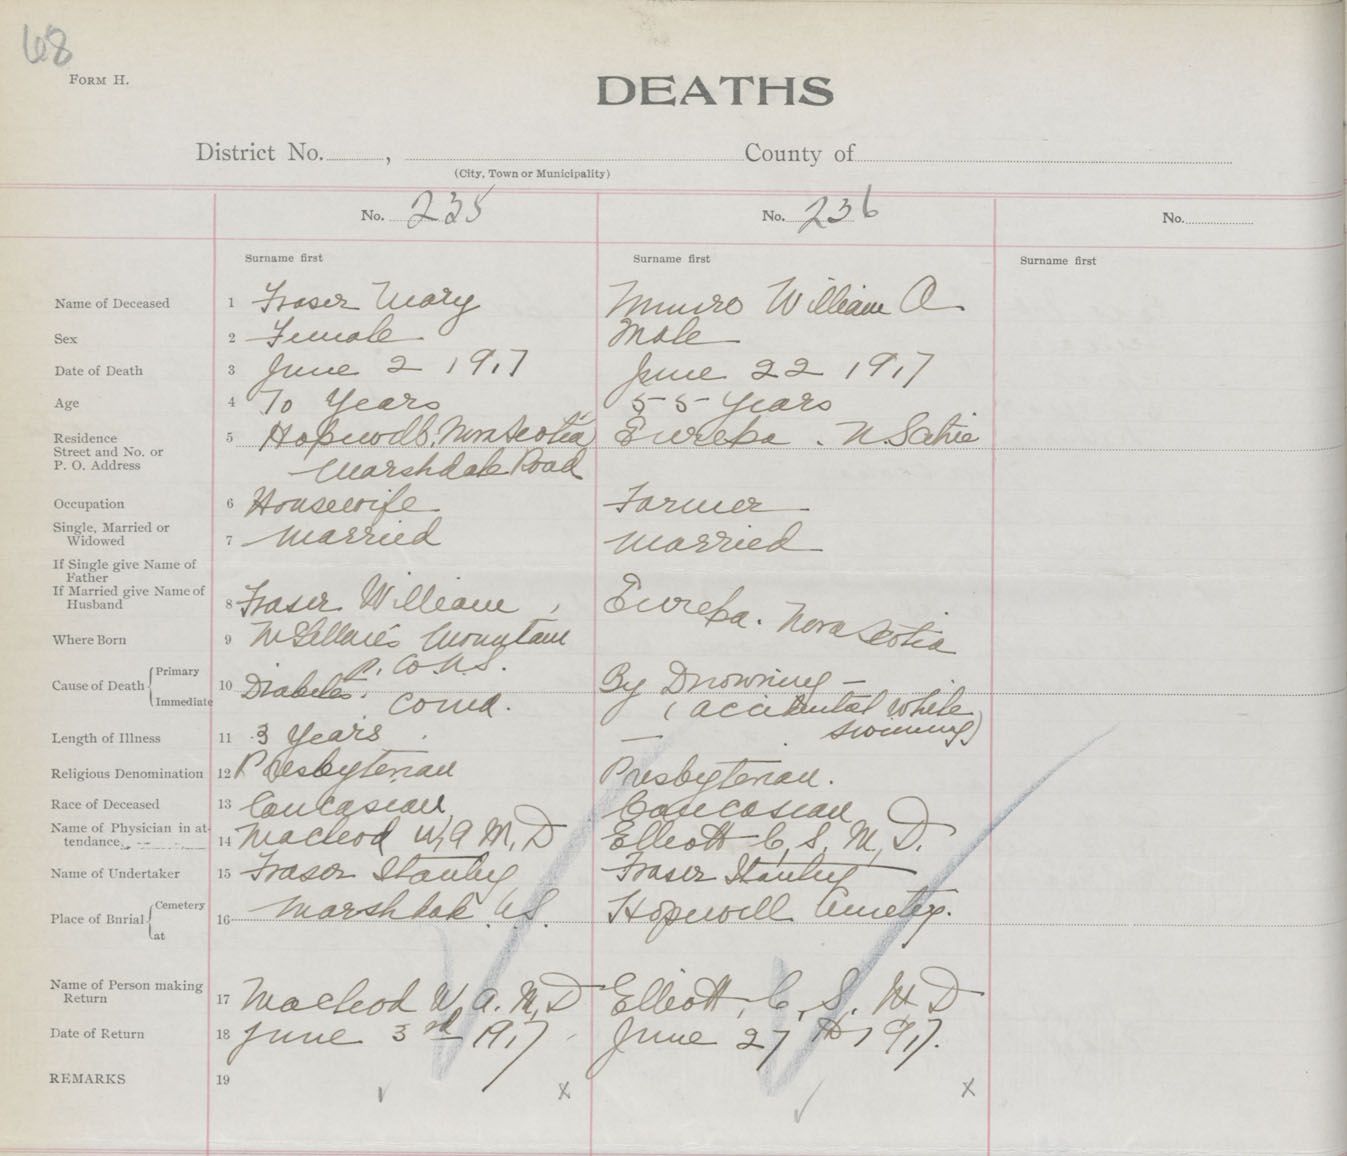 68
FORM H.
DEATHS
District No. , County of
(City, Town or Municipality)
No. 235 No. 236 No.
Surname first Surname first Surname first
Name of Deceased 1 Fraser Mary Munro William A
Sex 2 Female Male
Date of Death 3 June 2 1917 June 22 1917
Age 4 70 Years 55 years
Residence
Street and No. or
P. O. Address
5 Hopewell, Nova Scotia Eureka. N. Scotia
Marshdale Road
Occupation 6 Housewife Farmer
Single, Married or
Widowed
7 Married Married
If Single give Name of
Father
If Married give Name of
Husband
8 Fraser William, Eureka. Nova Scotia
Where Born 9 McLellan's Mountain
P. Co. N.S.
Cause of Death Primary
Immediate
10 Diabetes. By Drowning —
Coma. (accidental while
swimming)
Length of Illness 11 3 Years. —
Religious Denomination 12 Presbyterian Presbyterian.
Race of Deceased 13 Caucasian Caucasian
Name of Physician in at-
tendance
14 Macleod W, A M, D Elliott C, S, M, D.
Name of Undertaker 15 Fraser Stanley Fraser Stanley
Place of Burial Cemetery
at
16 Marshdale N.S. Hopewell Cemetry.
Name of Person making
Return
17 Macleod W, A. M, D Elliott, C, S, M D
Date of Return 18 June 3rd 1917 June 27th 1917.
REMARKS 19
x x